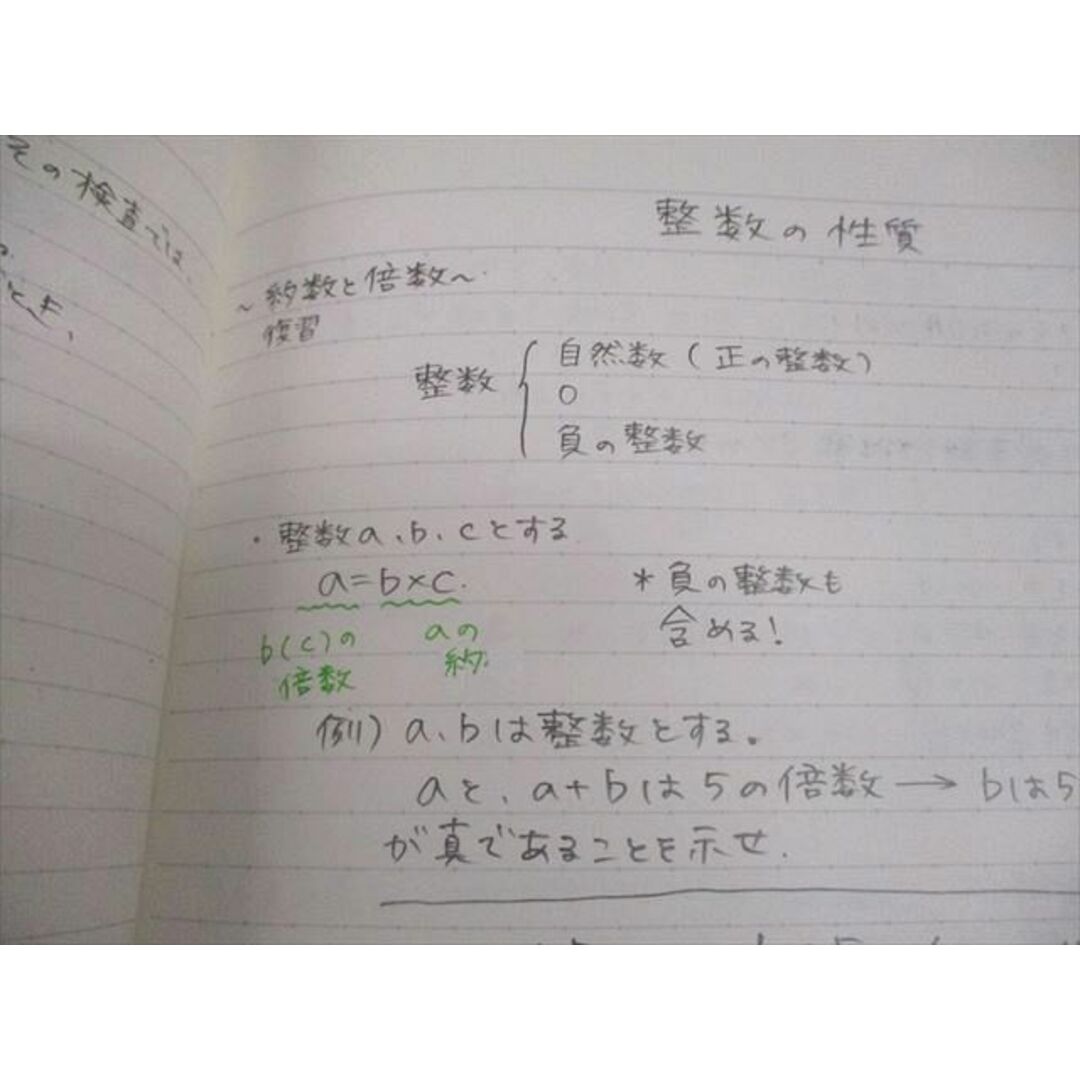 その検査では、
とき、
整数の性質
~約数と倍数~
復習
整数
自然数(正の整数)
0
負の整数
・整数a、b、cとする
a=b×c.
*負の整数も
含める!
b(c)の
倍数
aの
約.
例)a、bは整数とする。
aと、a+bは5の倍数→bは5
が真であることを示せ.